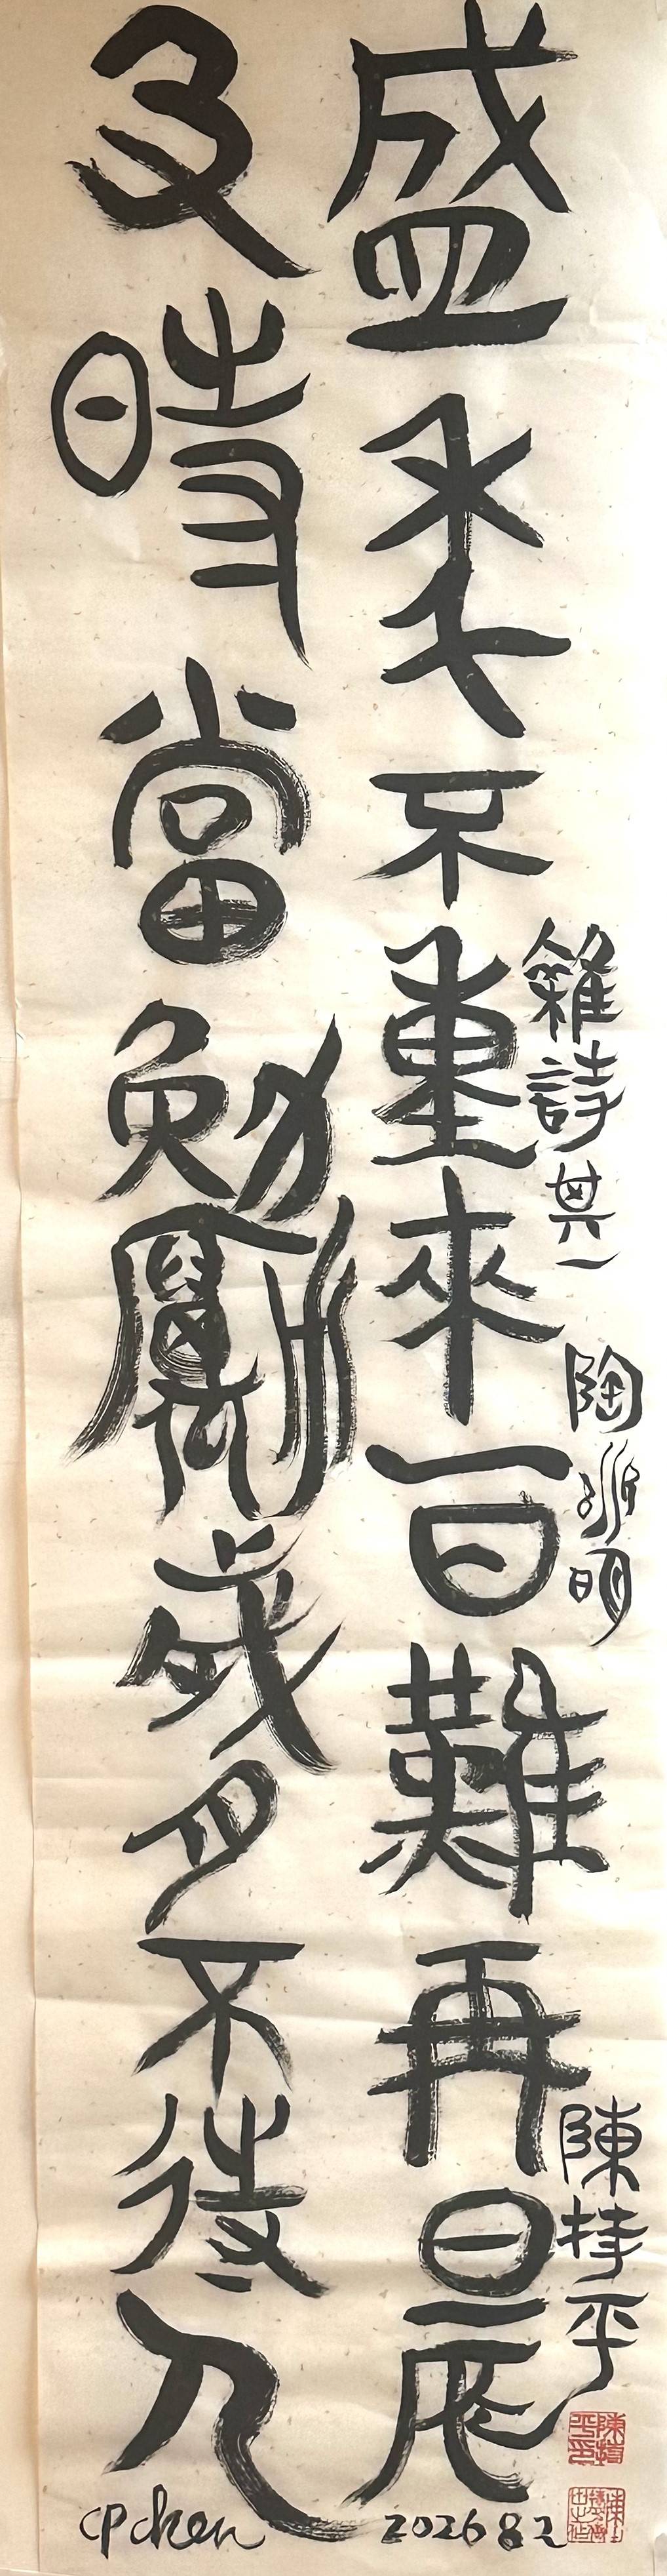 雜詩其一 陶淵明 陳持平
盛年不重來一日難再晨
及時當勉勵歲月不待人
CP chen 2026 8 2